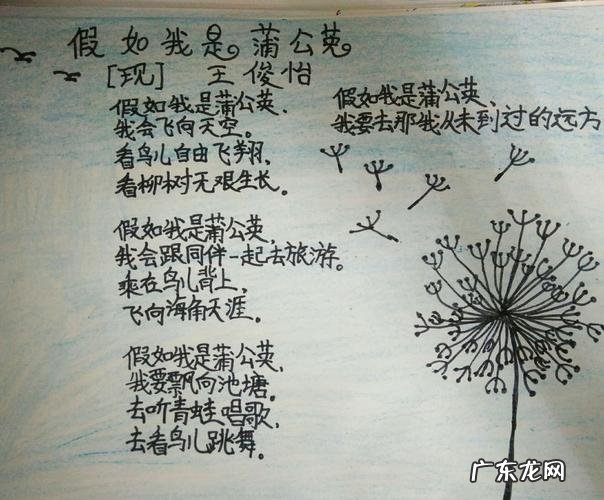 假如我是蒲公英
[现] 王俊怡
假如我是蒲公英.
我会飞向天空。
看鸟儿自由飞翔,
看柳树无艰生长。
假如我是蒲公英,
我会跟同伴一起去旅游。
乘在鸟儿背上,
飞向海角天涯。
假如我是蒲公英,
我要飘向池塘。
去听青蛙唱歌,
去看鸟儿跳舞。
假如我是蒲公英、
我要去那我从未到过的远方
广东龙网